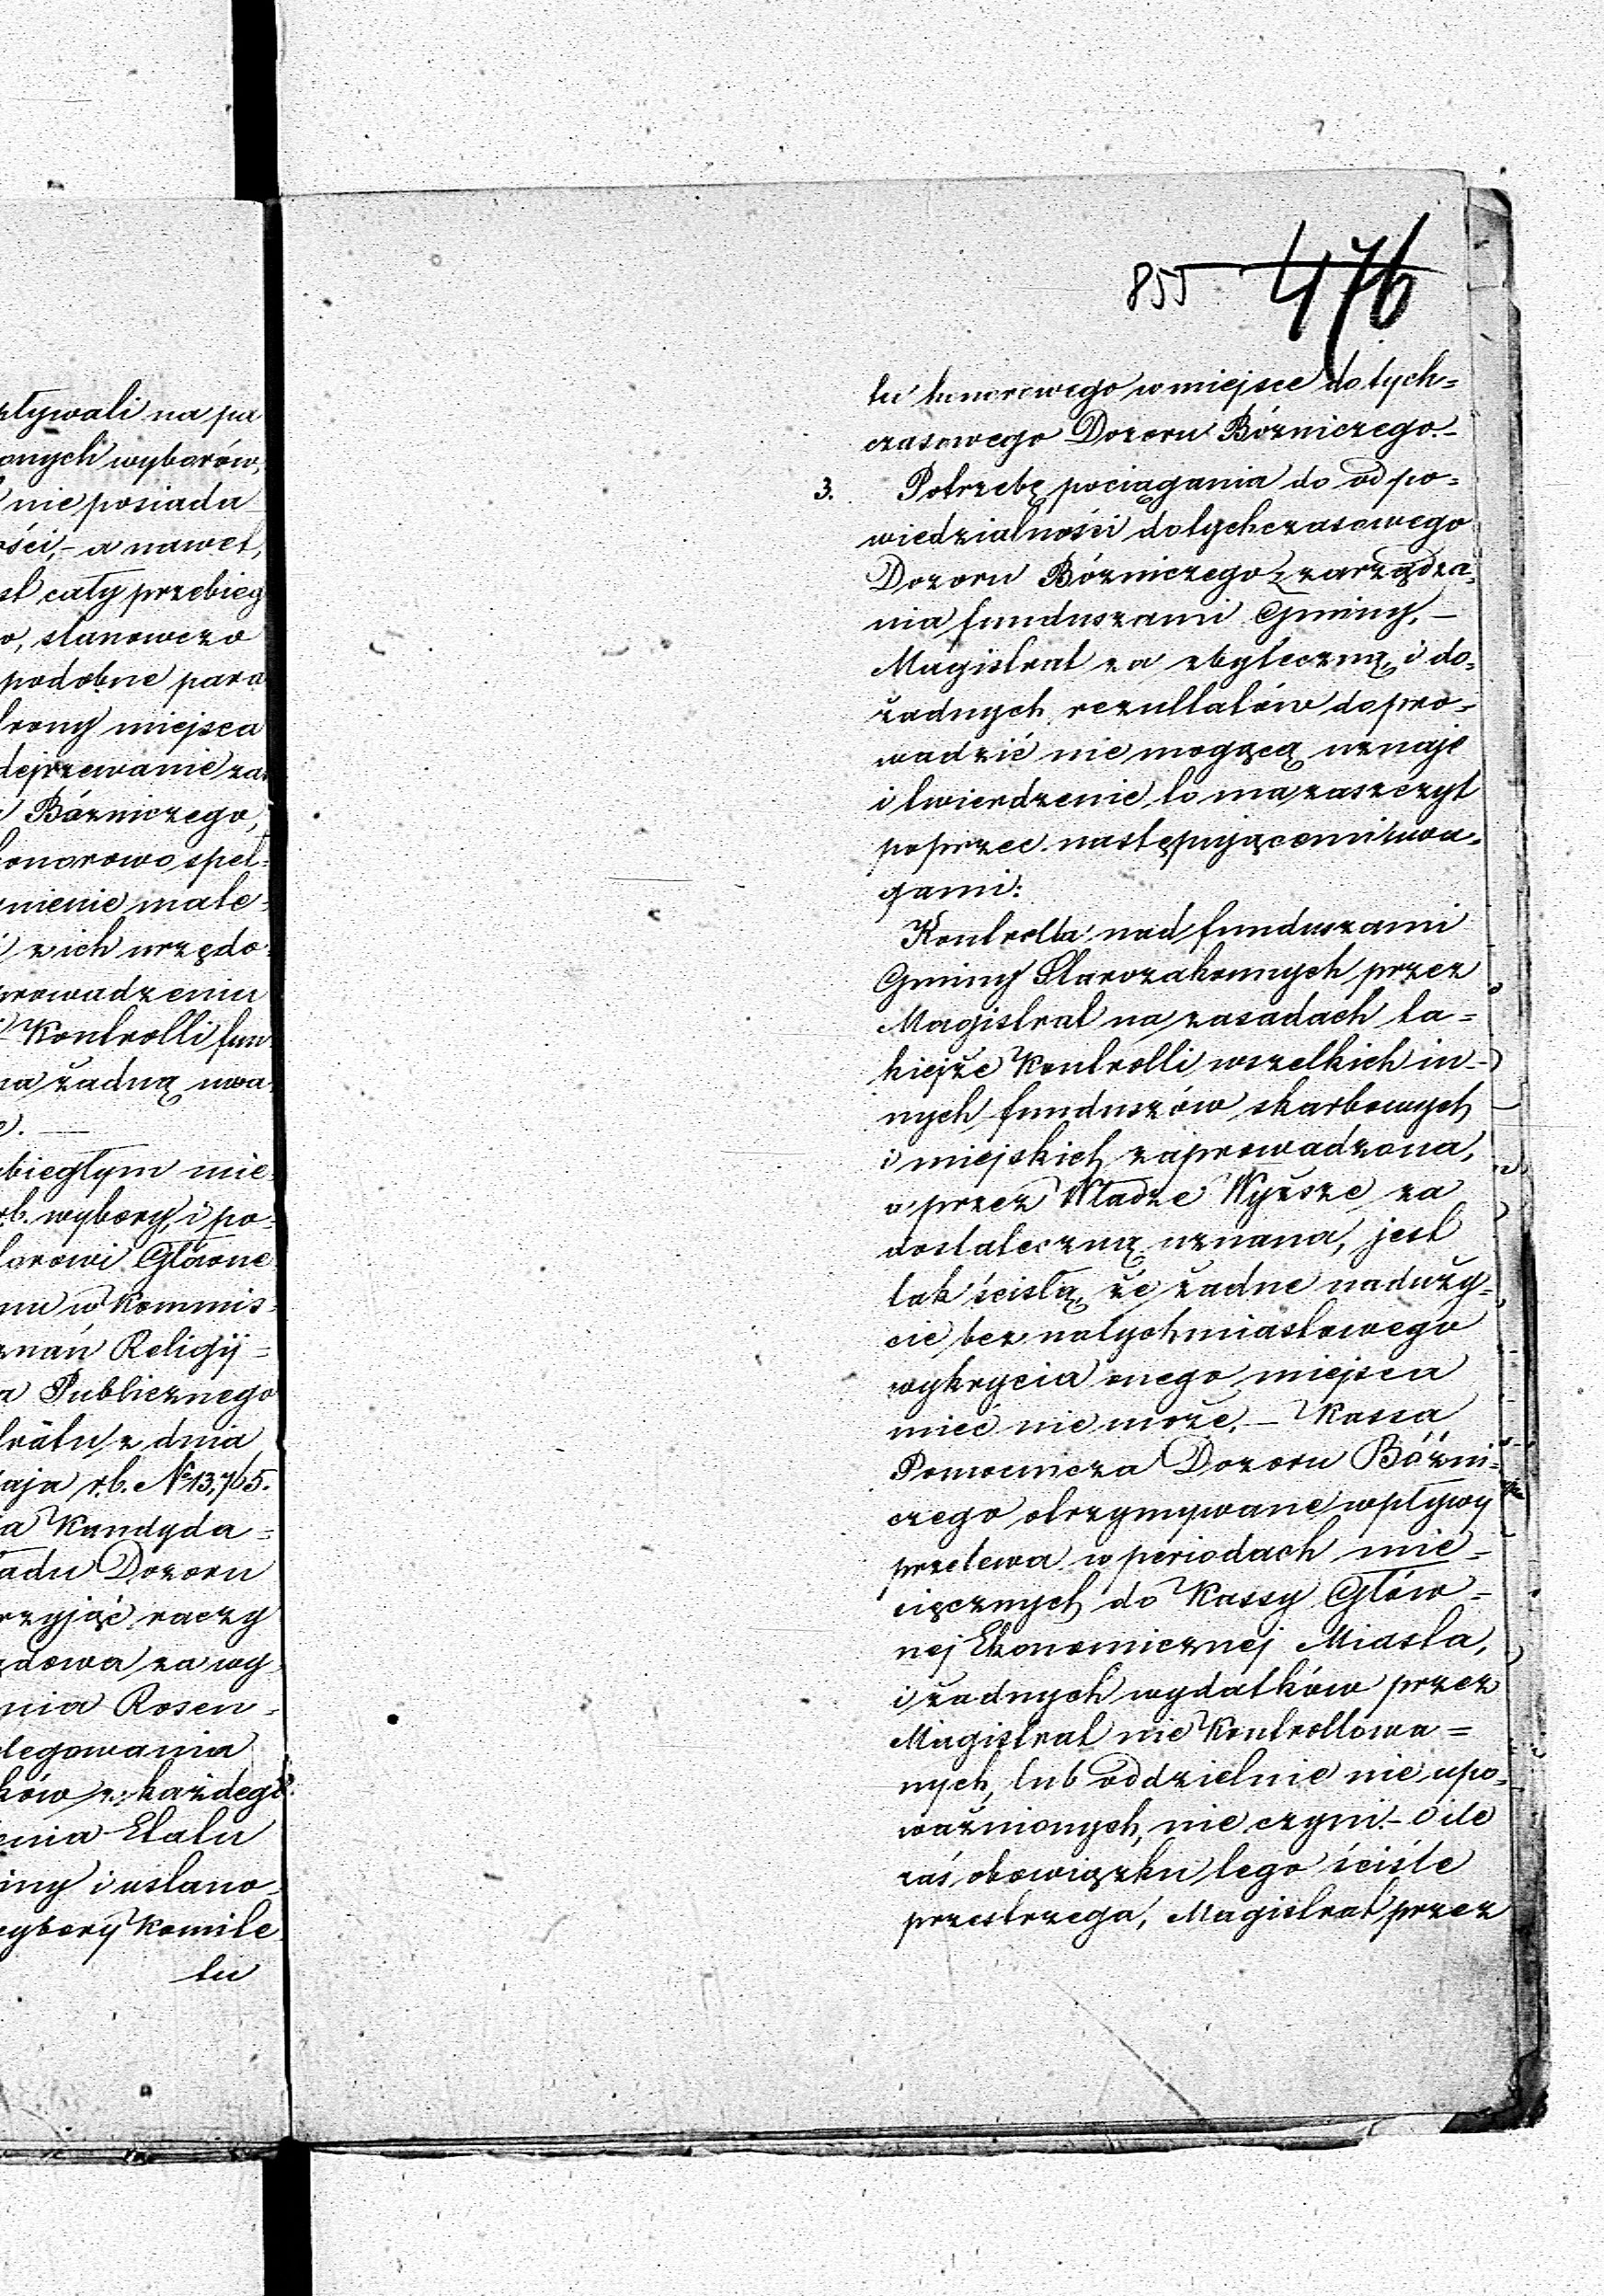 ływali na pa
onych wyborów,
nie posiada
ości,- a nawet,
st cały przebieg
o, stanowczo
podobne para
trony miejsca
dejrzewanie za-
Bóżniczego,
honorowo speł-
nienie mate-
z ich urzędo-
prowadzeniu
Kontrolli fun
na żadną uwa
biegłym mie-
r.b. wybory, i po-
torowi Głowne
mu w Kommis-
znań Religij=
a Publicznego
tratu z dnia
aja r.b. No 13,765.
ia Kandyda=
adu Dozoru
rzyjąć raczy
zdowa za wy
nia Rosen-
elegowania
ków z każdego
enia Etatu
iny i ustano-
wybory Komite
tu
855 476
tu honorowego w miejsce dotych=
czasowego Dozoru Bóżniczego.-
3. Potrzebę pociągania do odpo=
wiedzialności dotychczasowego
Dozoru Bóżniczego z zarządza-
nia funduszami Gminy,-
Magistrat za zbyteczną i do-
żadnych rezultatów dopro-
wadzić nie mogącą uznaje
i twierdzenie to ma zaszczyt
poprzec następującemi uwa-
gami:
Kontrolla nad funduszami
Gminy Starozakonnych przez
Magistrat na zasadach ta=
kiejże Kontrolli wszelkich in-
nych funduszów skarbowych
i miejskich zaprowadzona,
a przez Władze Wyższe za
dostateczną uznana, jest
tak ścisłą, że żadne naduży-
cie bez natychmiastowego
wykrycia onego miejsca
mieć nie może.- Kassa
Pomocnicza Dozoru Bóżni-
czego otrzymywane wpływy
przelewa w periodach mie-
sięcznych do Kassy Głów=
nej Ekonomicznej Miasta,
i żadnych wydatków przez
Magistrat nie Kontrollowa=
nych, lub oddzielnie nie upo-
ważnionych, nie czyni.- O ile
zaś obowiązku tego ściśle
przestrzega, Magistrat przez